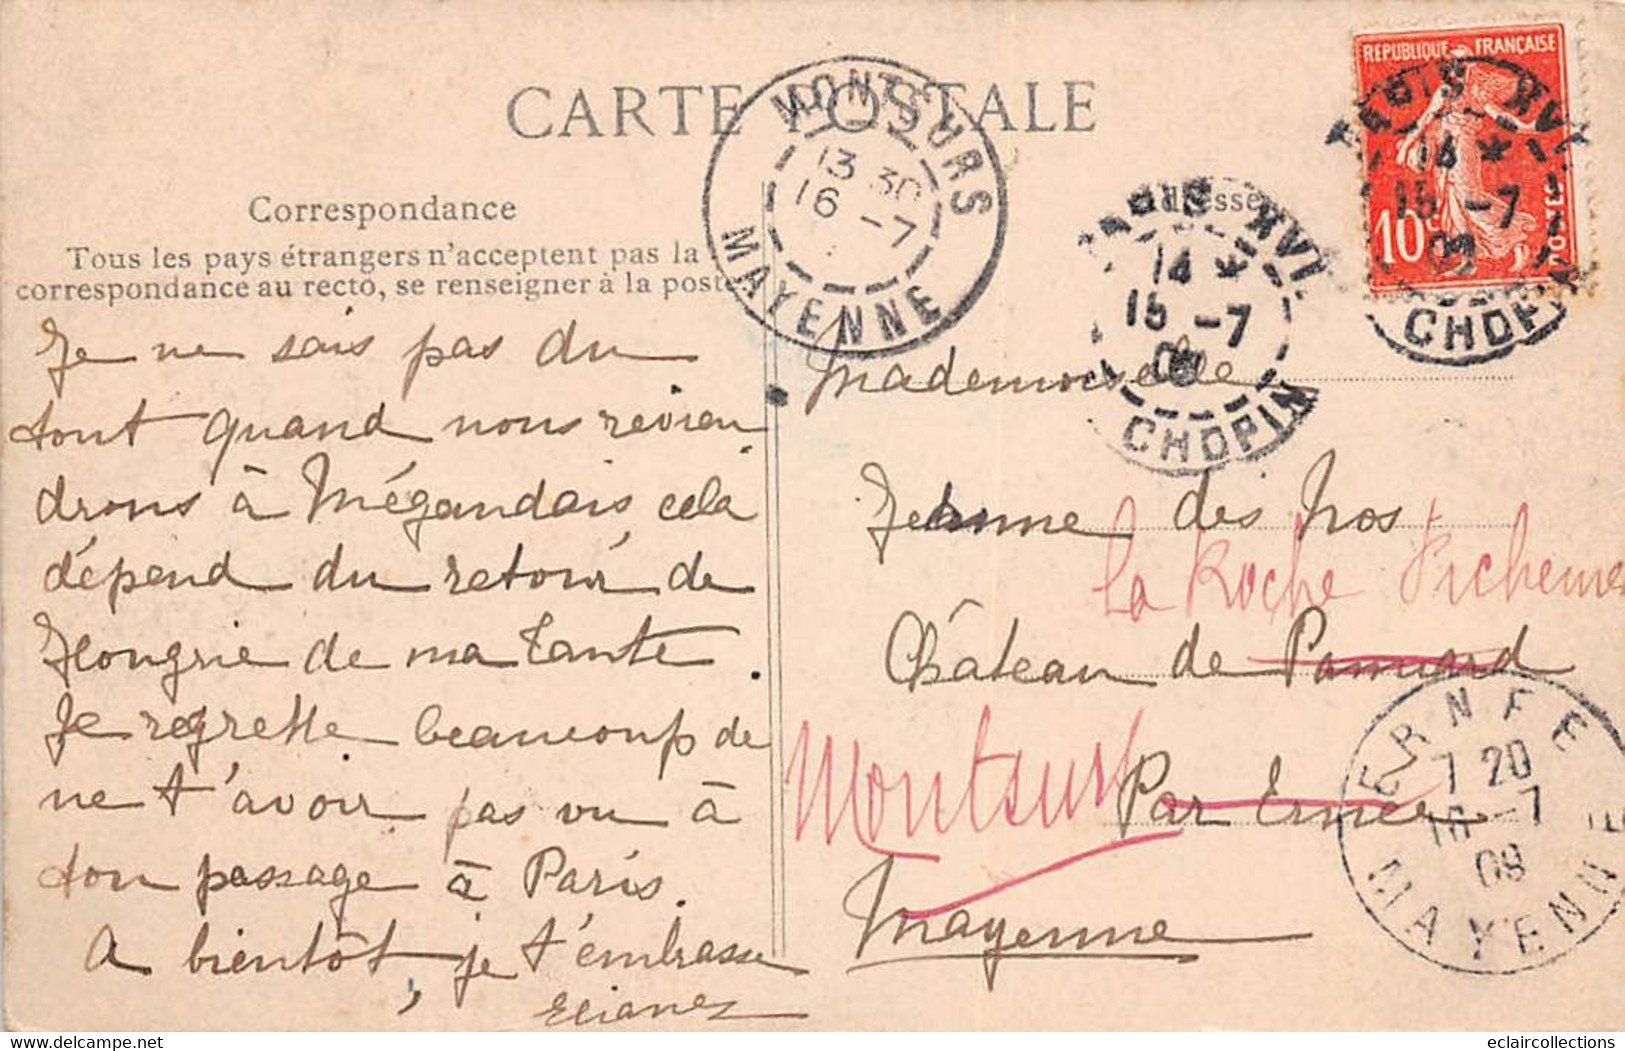 CARTE POSTALE
Correspondance
Tous les pays étrangers n'acceptent pas la
correspondance au recto, se renseigner à la poste
Je ne sais pas du
tout quand nous revien
drons à Mégaudais cela
dépend du retour de
Hongrie de ma tante.
Je regrette beaucoup de
ne t'avoir pas vu à
ton passage à Paris.
A bientôt, je t'embrasse
MONTSURS
13 30
16 -7
MAYENNE
PARIS XVI
14 *
15 -7
09
CHOPIN
REPUBLIQUE FRANÇAISE
10c
POSTES
PARIS XVI
14 *
15 -7
09
CHOPIN
Mademoiselle
des Nos
La Roche Pichemer
Château de Pannard
Montsurs Par Ernée
Mayenne
ERNEE
7 20
16 -7
09
MAYENNE
eclaircollections